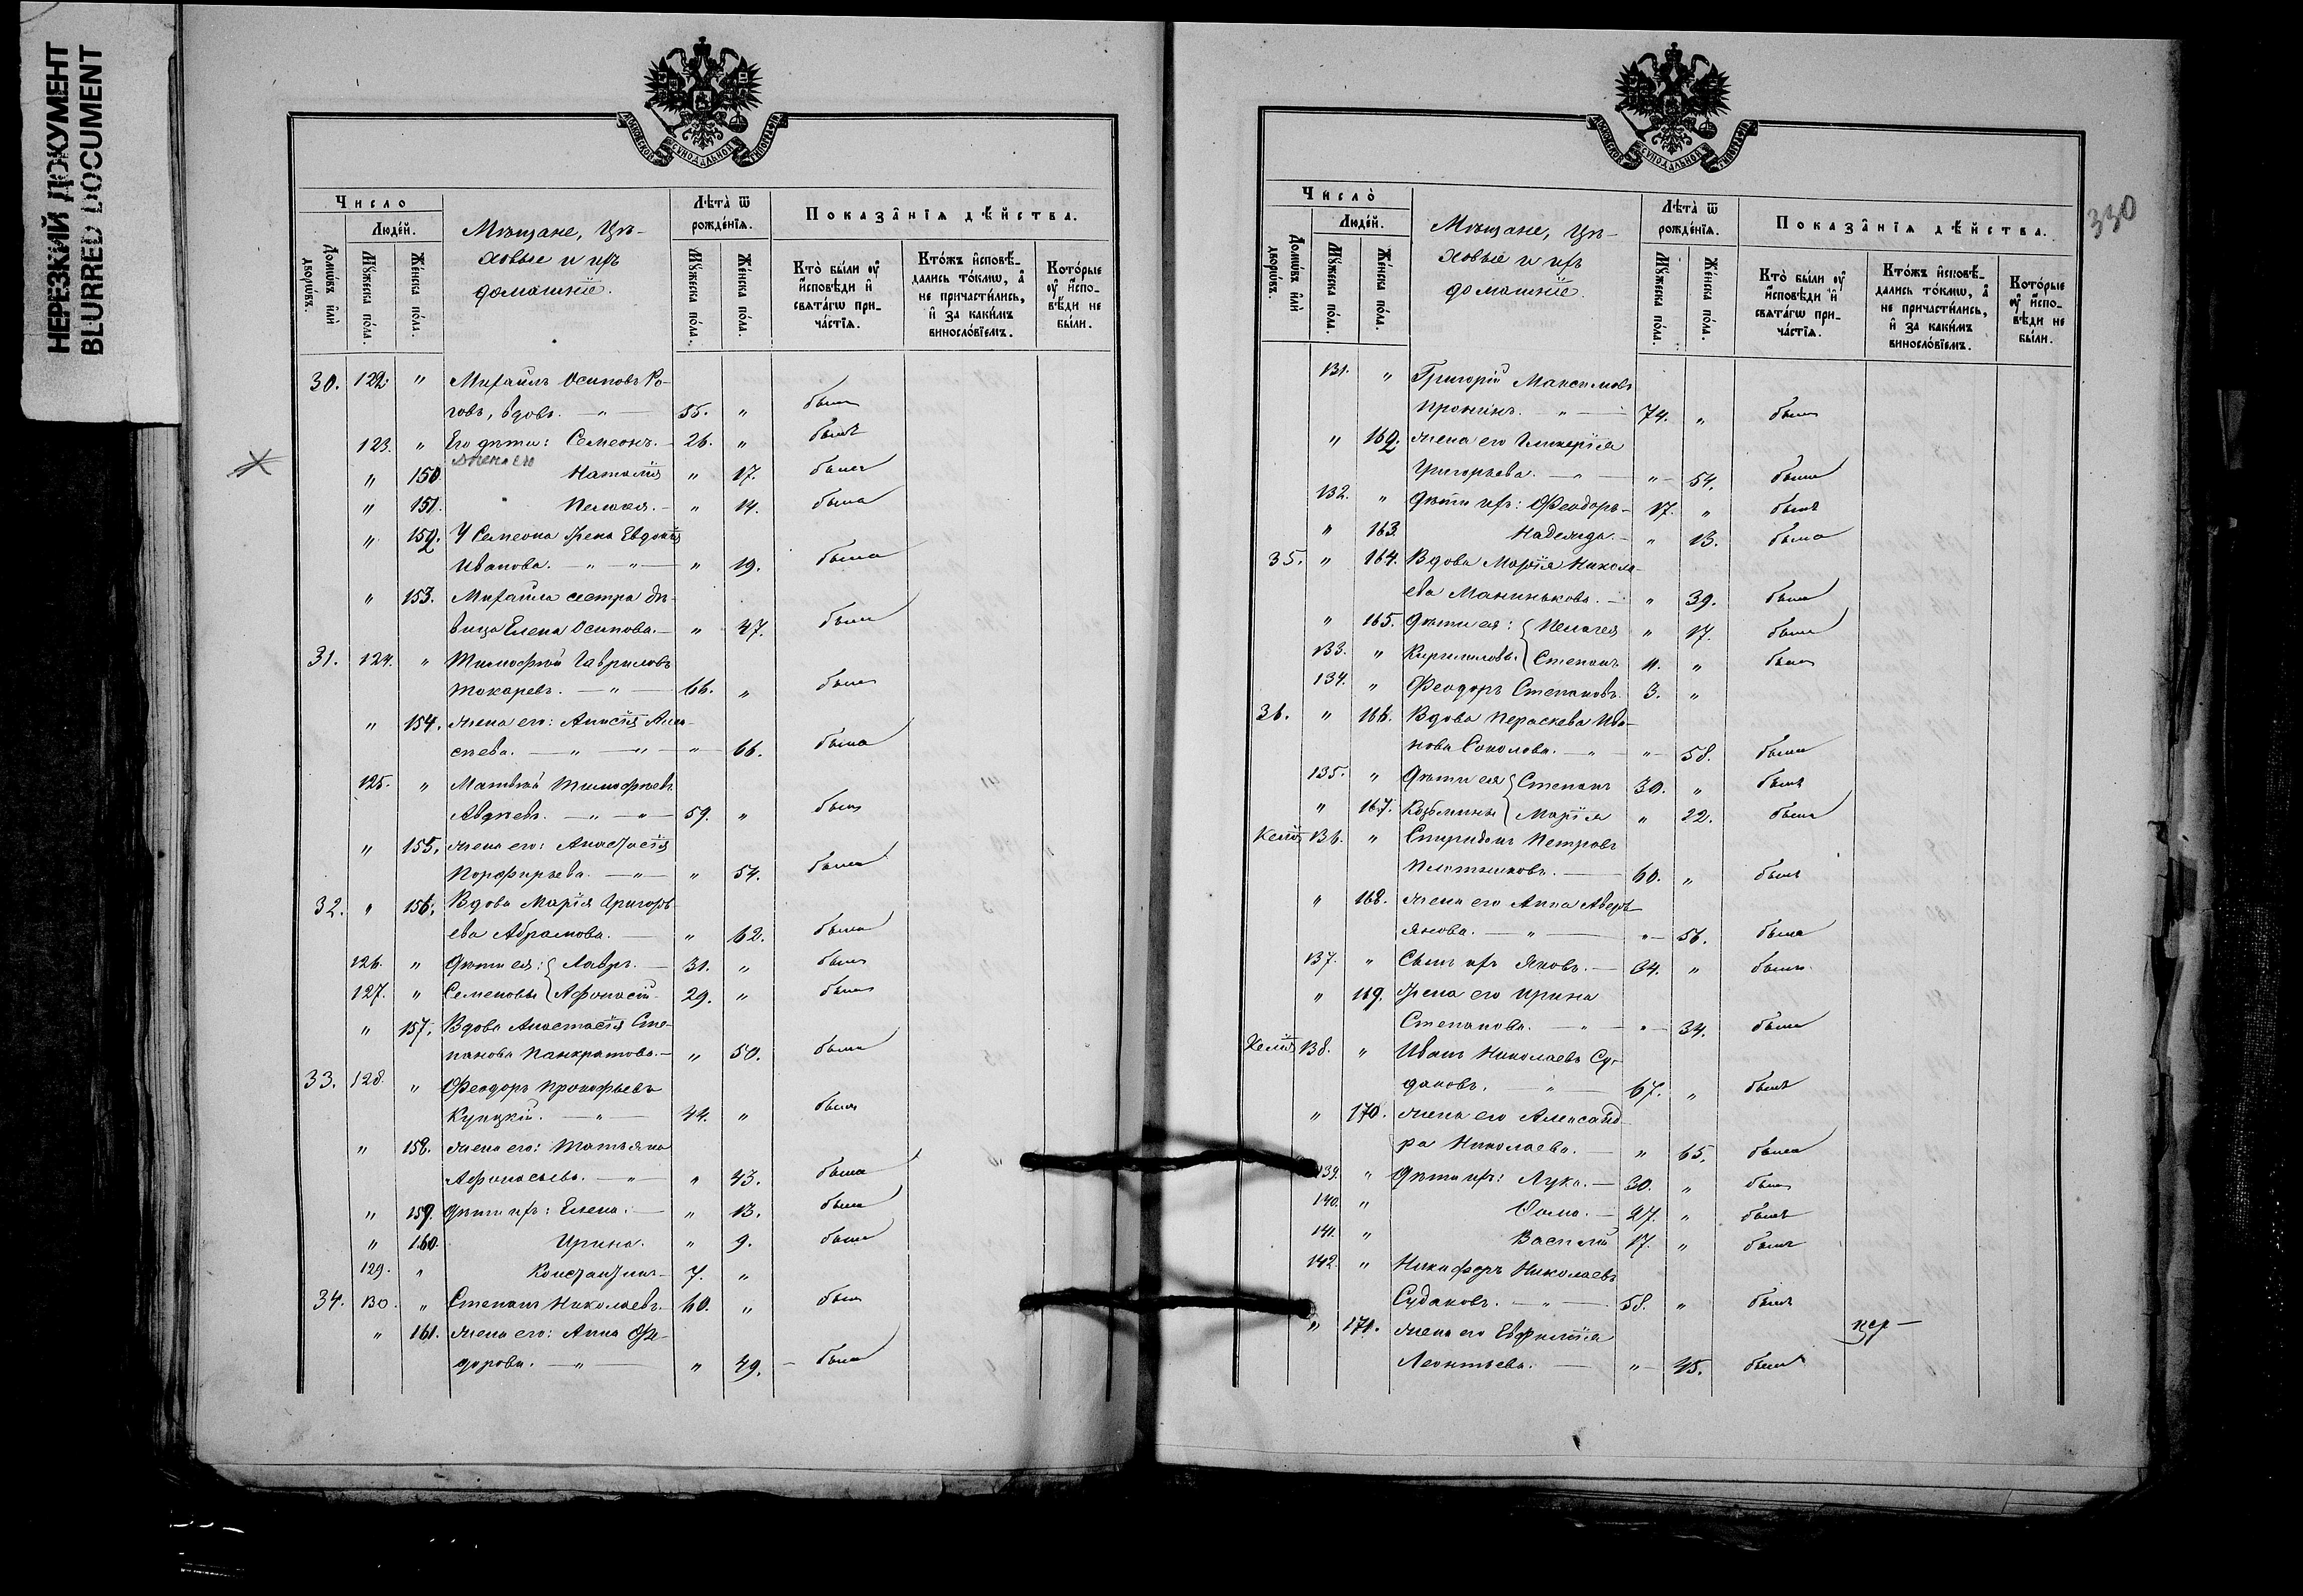 НЕРЕЗКИЙ ДОКУМЕНТ
BLURRED DOCUMENT
МОСКОВСКОЙ СѴНОДАЛЬНОЙ ТИПОГРАФІИ
Число
Людéй.
Домѡ́въ и҆лѝ дворѡ́въ.
Мꙋ́жеска по́ла.
Же́нска по́ла.
Мѣщане, Цѣ-
ховые и ихъ
домашніе.
Лѣта̀ ѿ
рождéнїѧ.
Мꙋ́жеска по́ла.
Же́нска по́ла.
Показа̑нїѧ дѣ́йства.
Кто̀ бы́ли ᲂу҆
и҆сповѣ́ди и҆
свѧта́гѡ при-
ча́стїѧ.
Кто́жъ и҆сповѣ́-
дались то́кмѡ, а҆
не причасти́лись,
и҆ за каки́мъ
винослóвїемъ.
Кото́рые
ᲂу҆ и҆спо-
вѣ́ди не
бы́ли.
30. 122. " Михаилъ Осиповъ Ро-
говъ, вдовъ. — " — 55. " былъ
123. " Его дѣти: Семеонъ. — 26. " былъ
жена его
" 150. Наталія " 17. была
" 151. Пелагея. — " 14. была
" 152. У Семеона жена Евдокія
Иванова. — " — " — " 19. была
" 153. Михаила сестра дѣ-
вица Елена Осипова. — " 47. была
31. 124. " Тимофей Гавриловъ
Токаревъ. — " — 66. " былъ
" 154. Жена его: Анисія Али-
сѣева. — " — " — " — 66. была
125. " Матвей Тимофѣевъ
Авдѣевъ. — " — " — 59. " былъ
" 155. Жена его: Анастасія
Порфирьева. — " — " 54. была
32. " 156. Вдова Марія Григорь-
ева Абрамова. — " 62. была
126. " Дѣти ея: Лавръ. — 31. " былъ
127. " Семеновы Афонасій — 29. " былъ
" 157. Вдова Анастасія Сте-
панова Панкратова. — " 50. была
33. 128. " Феодоръ Прокофьевъ
Купцкій. — " — 44. " былъ
" 158. Жена его: Татьяна
Афонасьева. — " — " 43. была
" 159. Дѣти ихъ: Елена. — " 13. была
" 160. Ирина. " 9. была
129. " Константинъ — 7. "
34. 130. " Степанъ Николаевъ. — 60. " былъ
" 161. Жена его: Анна Фе-
дорова. — " — " 49. — была
330
МОСКОВСКОЙ СѴНОДАЛЬНОЙ ТИПОГРАФІИ
Число̀
Людéй.
Домѡ́въ и҆лѝ дворѡ́въ.
Мꙋ́жеска по́ла.
Же́нска по́ла.
Мѣщане, Цѣ-
ховые и ихъ
домашніе.
Лѣта̀ ѿ
рождéнїѧ.
Мꙋ́жеска по́ла.
Же́нска по́ла.
Показа̑нїѧ дѣ́йства.
Кто̀ бы́ли ᲂу҆
и҆сповѣ́ди и҆
свѧта́гѡ при-
ча́стїѧ.
Кто́жъ и҆сповѣ́-
дались то́кмѡ, а҆
не причасти́лись,
и҆ за каки́мъ
винослóвїемъ.
Кото́рые
ᲂу҆ и҆спо-
вѣ́ди не
бы́ли.
131. " Григорій Максимовъ
Пронинъ. " — 74. " былъ
" 162. Жена его Гликерія
Григорьева. — " — " — 54. была
132. " Дѣти ихъ: Феодоръ — 17. " былъ
" 163. Надежда. — " 13. была
35. " 164. Вдова Марія Никола-
ева Манинькова. — " 39. была
" 165. Дѣти ея: Пелагея " 17. была
133. " Кирилловы. Степанъ 11. " былъ
134. " Феодоръ Степановъ. 3. "
36. " 166. Вдова Пераскева Ива-
нова Соколова. — " — " — 58. была
135. " Дѣти ея Степанъ 30. " былъ
" 167. Козьмины Марія " 22. была
Келія 136. " Спиридонъ Петровъ
Плотниковъ. — 60. " былъ
" 168. Жена его Анна Аверь-
янова. — " — " — 56. была
137. " Сынъ ихъ Яковъ. — 34. " былъ.
" 169. Жена его Ирина
Степанова. — " — " — 34. была
Келія 138. " Иванъ Николаевъ Су-
даковъ. — " — 67. " былъ
" 170. Жена его Александ-
ра Николаева. — " 65. была
139. " Дѣти ихъ: Лука. — 30. " былъ
140. " Фома. — 27. " былъ
141. " Василій 17. " былъ
142. " Никифоръ Николаевъ
Судаковъ. — " — 58. " былъ
" 171. Жена его Евфимія
Леонтьева. — " — 45. была